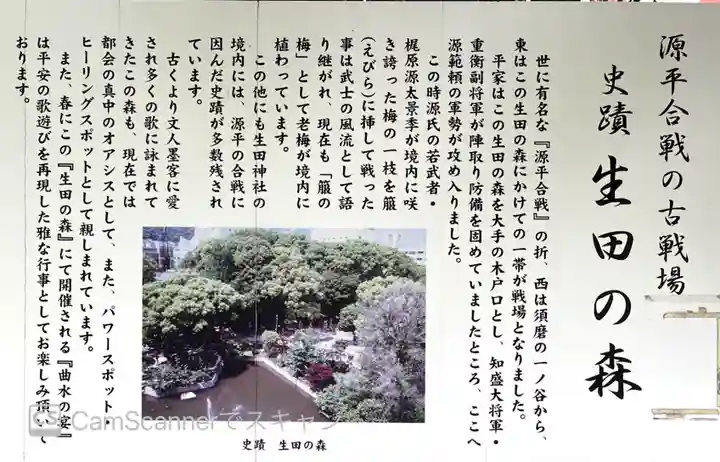 源平合戦の古戦場
史蹟 生田の森
世に有名な『源平合戦』の折、西は須磨の一ノ谷から、
東はこの生田の森にかけての一帯が戦場となりました。
平家はこの生田の森を大手の木戸口とし、知盛大将軍・
重衡副将軍が陣取り防備を固めていましたところ、ここへ
源範頼の軍勢が攻め入りました。
この時源氏の若武者・
梶原源太景季が境内に咲
き誇った梅の一枝を箙
(えびら)に挿して戦った
事は武士の風流として語
り継がれ、現在も「箙の
梅」として老梅が境内に
植わっています。
この他にも生田神社の
境内には、源平の合戦に
因んだ史蹟が多数残され
ています。
古くより文人墨客に愛
され多くの歌に詠まれて
きたこの森も、現在では
都会の真中のオアシスとして、また、パワースポット・
ヒーリングスポットとして親しまれています。
また、春にこの『生田の森』にて開催される『曲水の宴』
は平安の歌遊びを再現した雅な行事としてお楽しみ頂いて
おります。
史蹟 生田の森
CS CamScannerでスキャン